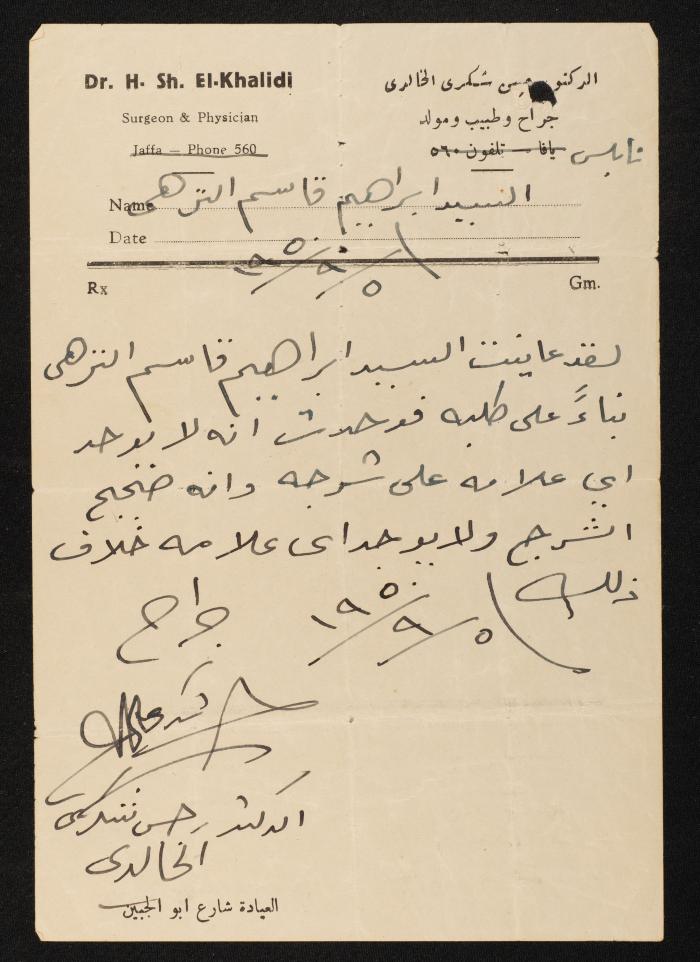 Dr. H. Sh. El-Khalidi
Surgeon & Physician
Jaffa — Phone 560
الدكتور حسن شكري الخالدي
جراح وطبيب ومولد
يافا — تلفون ٥٦٠ نابلس
Name السيد ابراهيم قاسم النزهى
Date ٥/٩/١٩٥٠
Rx Gm.
لقد عاينت السيد ابراهيم قاسم النزهى
بناءً على طلبه فوجدت انه لا يوجد
اي علامه على شرجه وانه صحيح
الشرج ولا يوجد اى علامه خلاف
ذلك ٥/٩/١٩٥٠
جراح
الدكتور حسن شكرى
الخالدى
العيادة شارع ابو الجبين